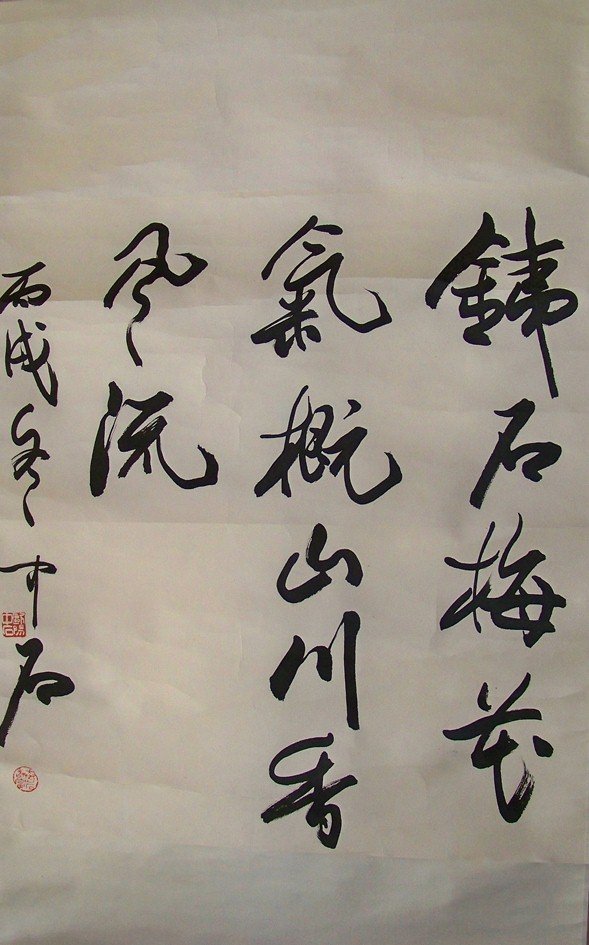 銕石梅花
氣概山川香
風流
丙戌冬中石